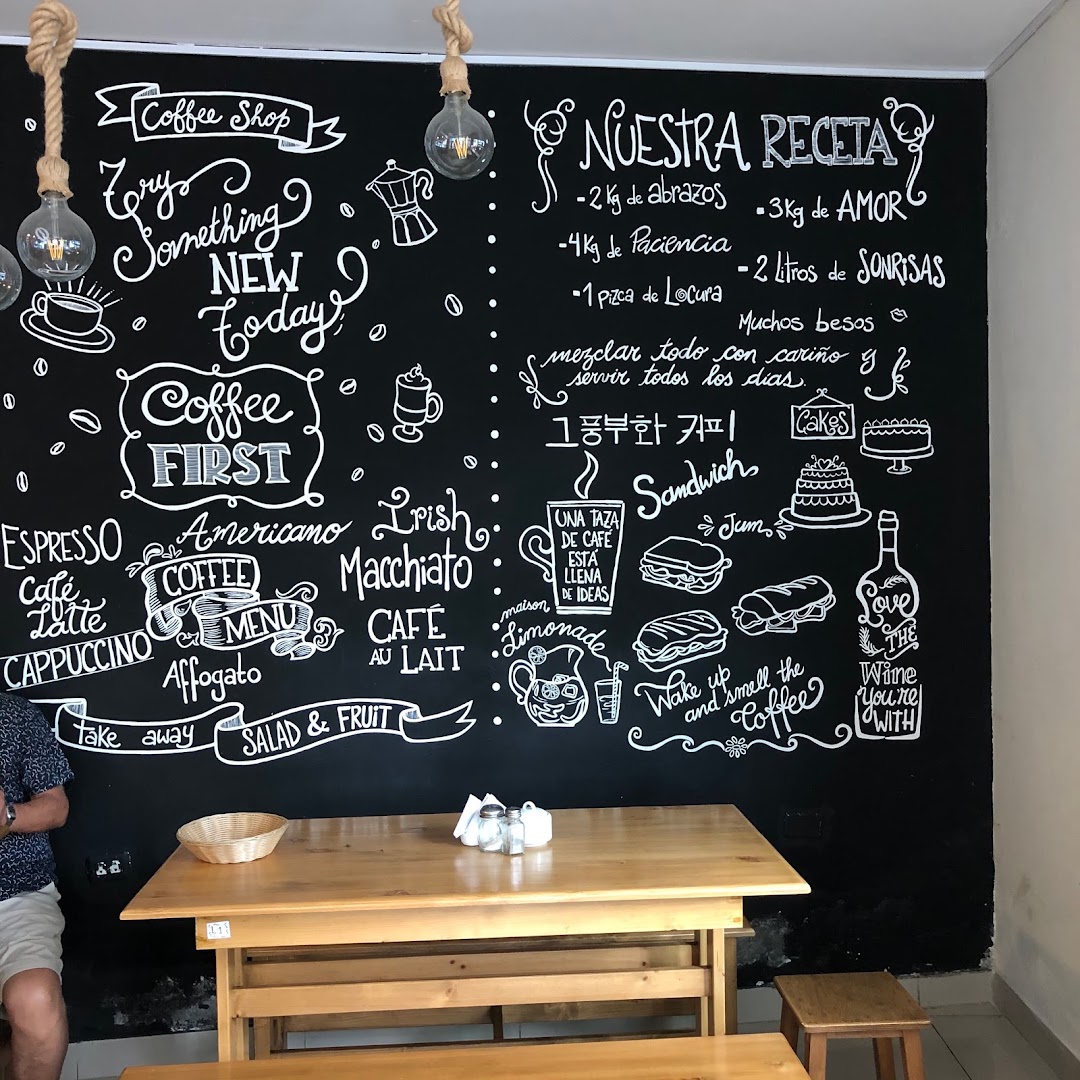 Coffee Shop
Try
Something
NEW
Today
Coffee
FIRST
ESPRESSO
Americano
Irish
Café
Latte
COFFEE
MENU
Macchiato
CAPPUCCINO
Affogato
CAFÉ
AU LAIT
Take away
SALAD & FRUIT
NUESTRA RECETA
- 2 Kg de abrazos
- 3 Kg de AMOR
- 4 Kg de Paciencia
- 2 Litros de SONRISAS
- 1 pizca de Locura
Muchos besos
mezclar todo con cariño y
servir todos los días.
그 풍부화 커피!
Cakes
Sandwich
Jum
UNA TAZA
DE CAFÉ
ESTÁ
LLENA
DE IDEAS
maison
Limonade
Wake up
and smell the
Coffee
Love
THE
Wine
you're
WITH